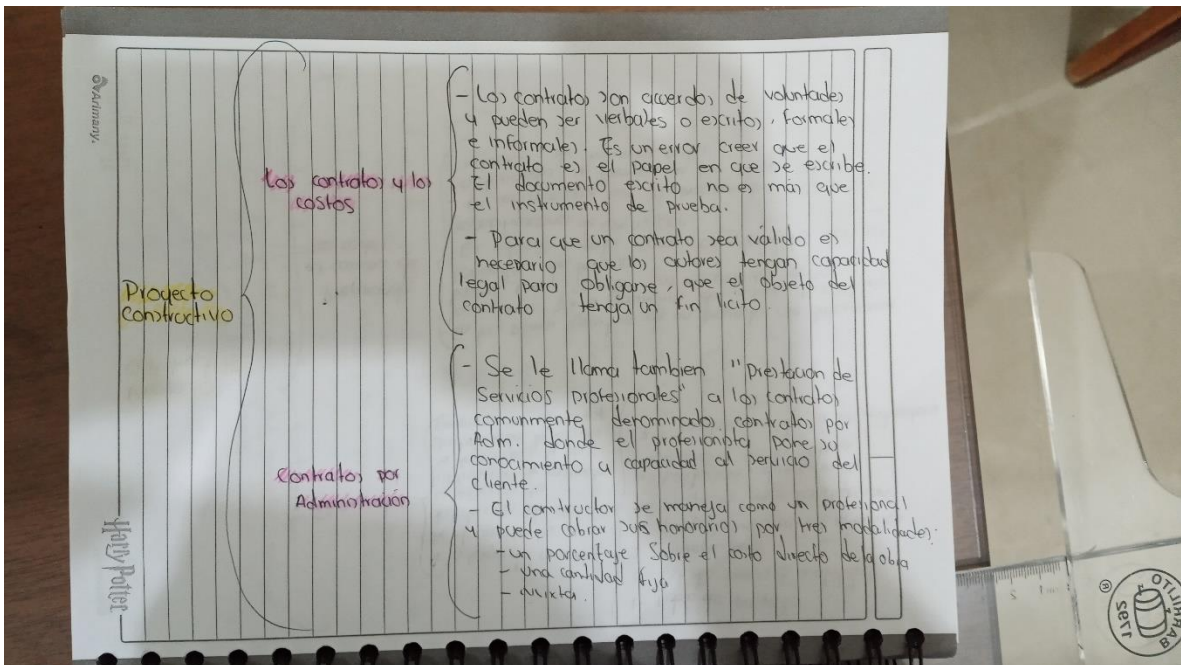 Proyecto
constructivo
Los contratos y los
costos
- Los contratos son acuerdos de voluntades
y pueden ser verbales o escritos, formales
e informales. Es un error creer que el
contrato es el papel en que se escribe.
El documento escrito no es más que
el instrumento de prueba.
- Para que un contrato sea válido es
necesario que los autores tengan capacidad
legal para obligarse, que el objeto del
contrato tenga un fin licito.
Contratos por
Administración
- Se le llama tambien "Prestación de
Servicios profesionales" a los contratos
comunmente denominados contratos por
Adm. donde el profesionista pone su
conocimiento y capacidad al servicio del
cliente.
- El constructor se maneja como un profesional
y puede cobrar sus honorarios por tres modalidades:
- un porcentaje Sobre el costo directo de la obra
- una cantidad fija
- Mixta.
Arimany.
Harry Potter
BARRILITO
®
7295